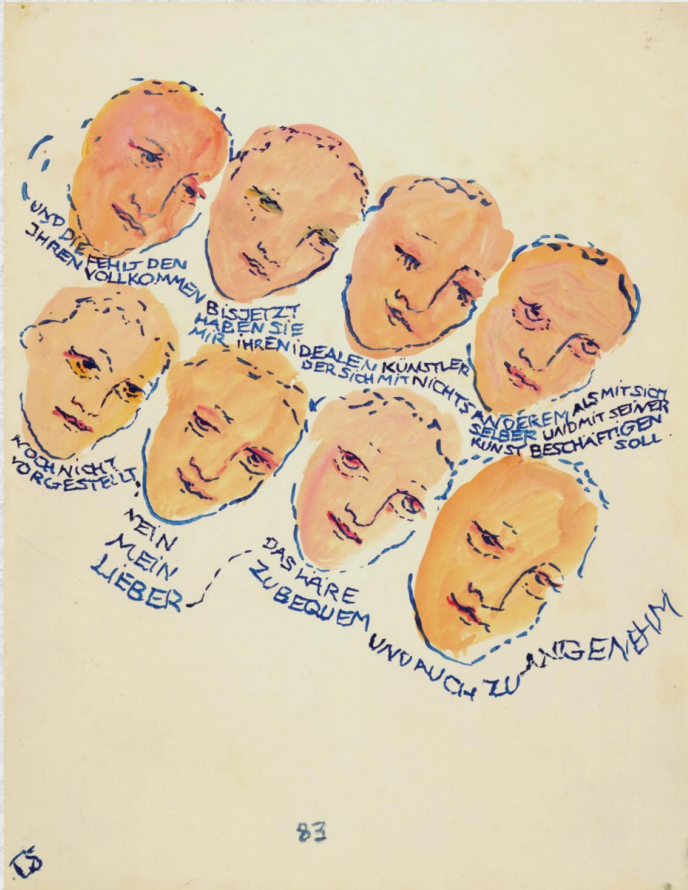 UND DIE FEHLT DEN
JHREN VOLLKOMMEN
BISJETZT
HABEN SIE
MIR IHREN IDEALEN KÜNSTLER
DER SICH MIT NICHTS ANDEREM ALS MIT SICH
SELBER UND MIT SEINER
KUNST BESCHÄFTIGEN
SOLL.
NOCH NICHT
VORGESTELLT
NEIN
MEIN
LIEBER
DAS WÄRE
ZU BEQUEM
UND AUCH ZU ANGENEHM
83